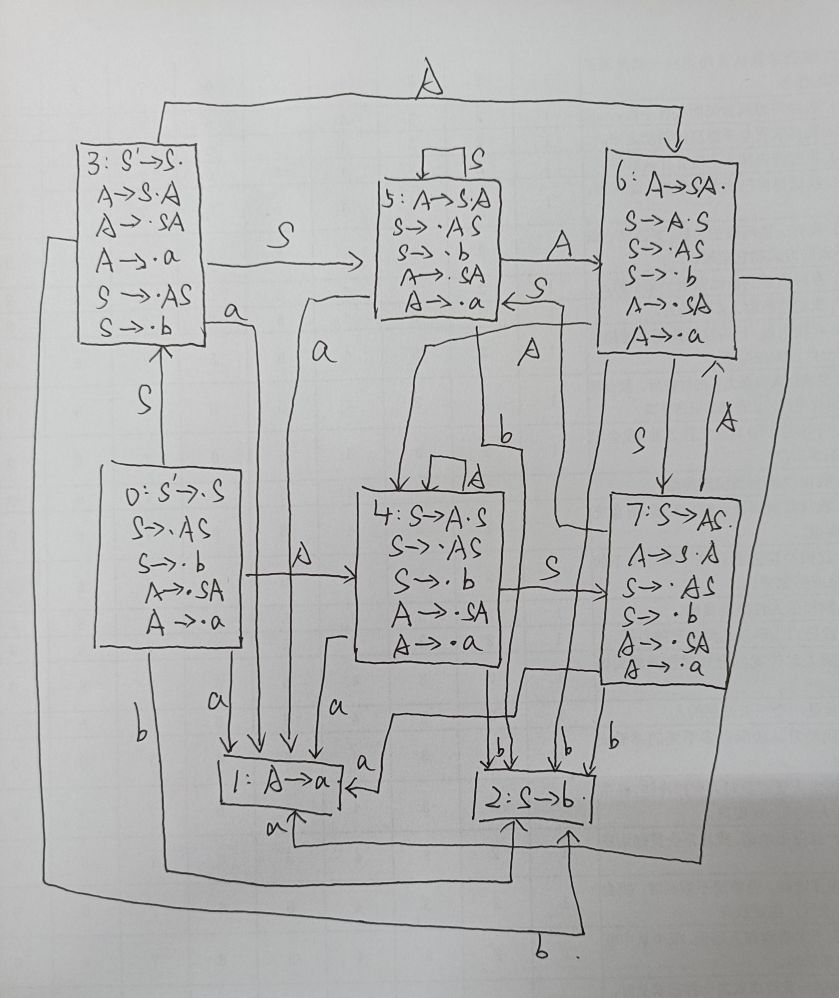 A
3: S'→S.
A→S·A
A→·SA
A→·a
S→·AS
S→·b
S
5: A→S·A
S→·AS
S→·b
A→·SA
A→·a
S
A
6: A→SA·
S→A·S
S→·AS
S→·b
A→·SA
A→·a
a
a
S
A
S
b
S
A
0: S'→.S
S→.AS
S→·b
A→·SA
A→·a
A
4: S→A·S
S→·AS
S→·b
A→·SA
A→·a
A
S
7: S→AS.
A→S·A
S→·AS
S→·b
A→·SA
A→·a
b
a
a
a
b
b
b
1: A→a·
2: S→b·
a
b